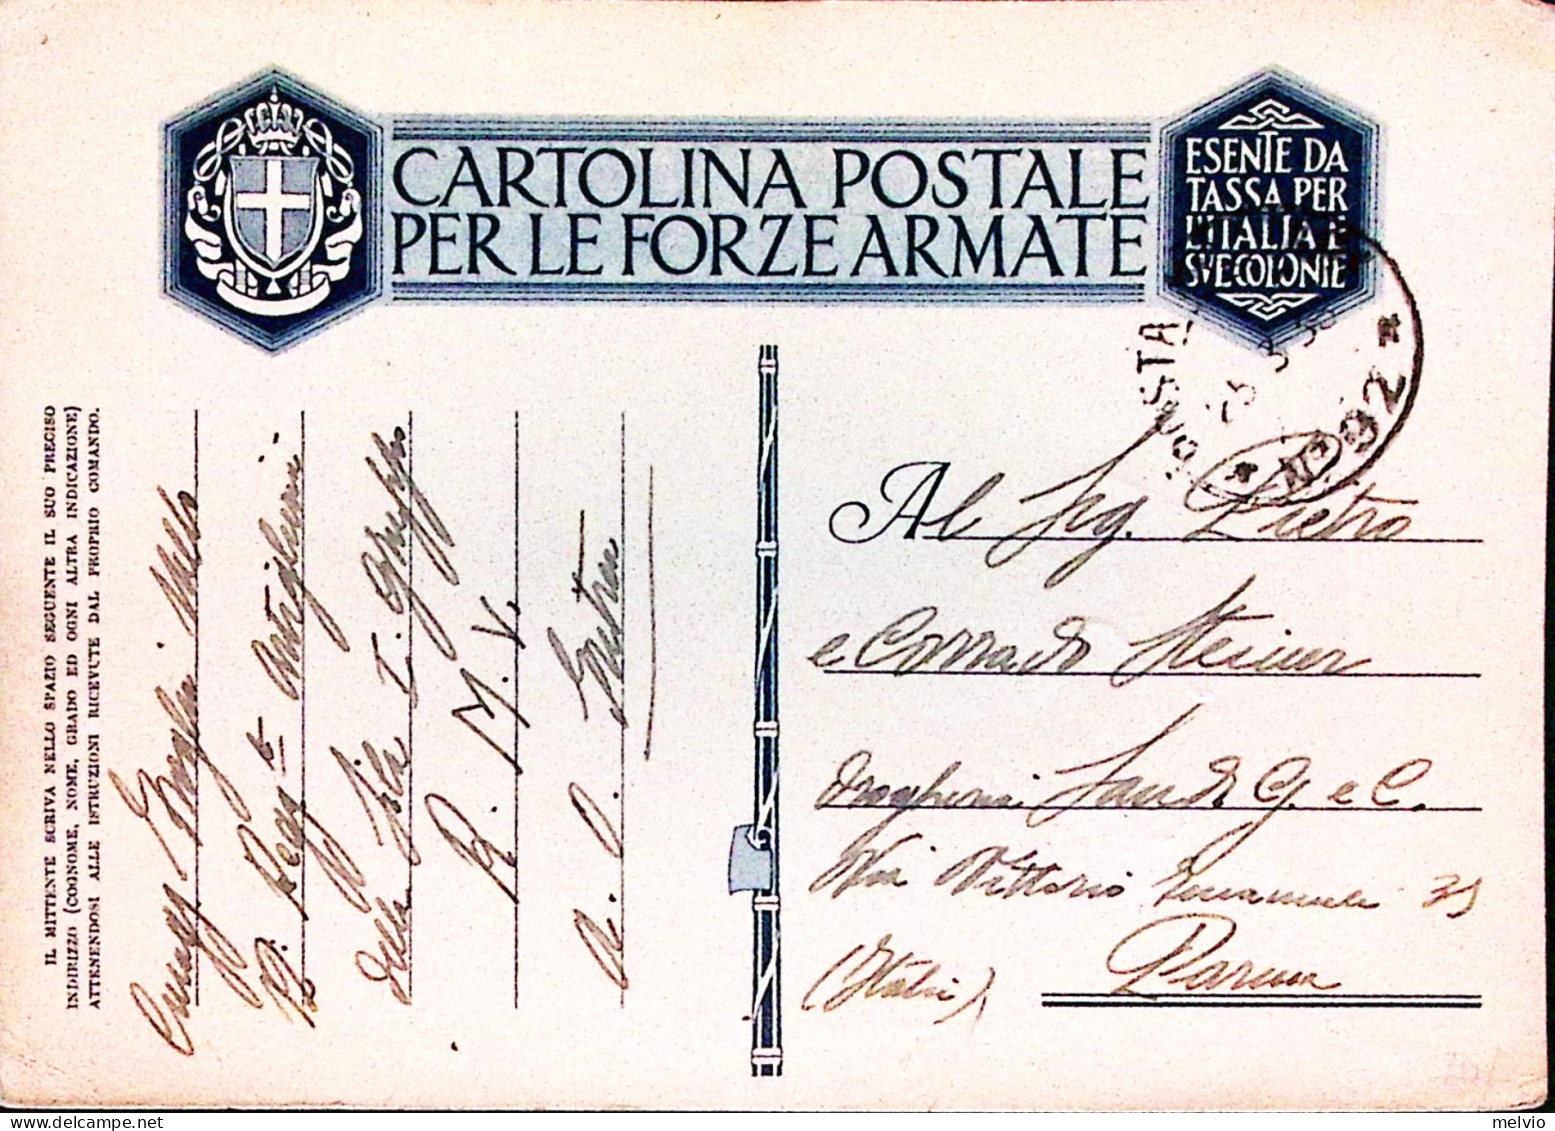 CARTOLINA POSTALE
PER LE FORZE ARMATE
ESENTE DA
TASSA PER
L'ITALIA E
SVE COLONIE
POSTA
-5 3 38
* N° 92 *
IL MITTENTE SCRIVA NELLO SPAZIO SEGUENTE IL SUO PRECISO
INDIRIZZO (COGNOME, NOME, GRADO ED OGNI ALTRA INDICAZIONE)
ATTENENDOSI ALLE ISTRUZIONI RICEVUTE DAL PROPRIO COMANDO.
R. Regg.to Artiglieria
della I. Gruppo
R. M. V.
A. O. Eritrea
Al Sig. Pietro
e Corrado Steiner
drogheria G. e C.
Via Vittorio Emanuele 35
(Italia) Parma
melvio